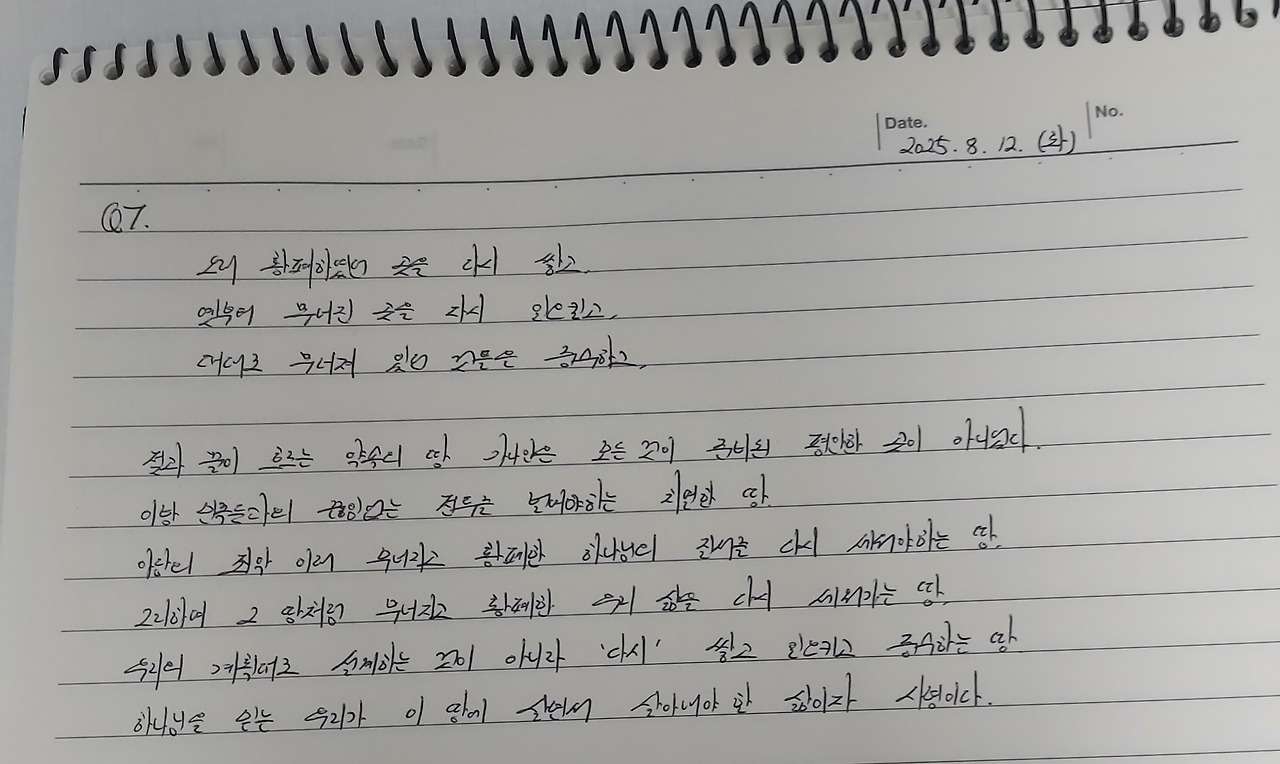 Date.
No.
2025. 8. 12. (화)
QT.
오래 황폐하였던 곳을 다시 쌓고,
옛부터 무너진 곳을 다시 일으키고,
대대로 무너져 있던 것들을 중수하고,
젖과 꿀이 흐르는 약속의 땅 가나안은 모든 것이 준비된 평안한 곳이 아니었다.
이방 신족들과의 끊임없는 전투를 날려야하는 치열한 땅.
아담의 죄악 이래 무너지고 황폐한 하나님의 질서를 다시 세워야하는 땅.
그리하여 그 땅처럼 무너지고 황폐한 우리 삶을 다시 세워가는 땅.
우리의 계획대로 설계하는 것이 아니라 '다시' 쌓고 일으키고 중수하는 땅.
하나님을 믿는 우리가 이 땅에 살면서 살아내야 할 삶이자 사명이다.